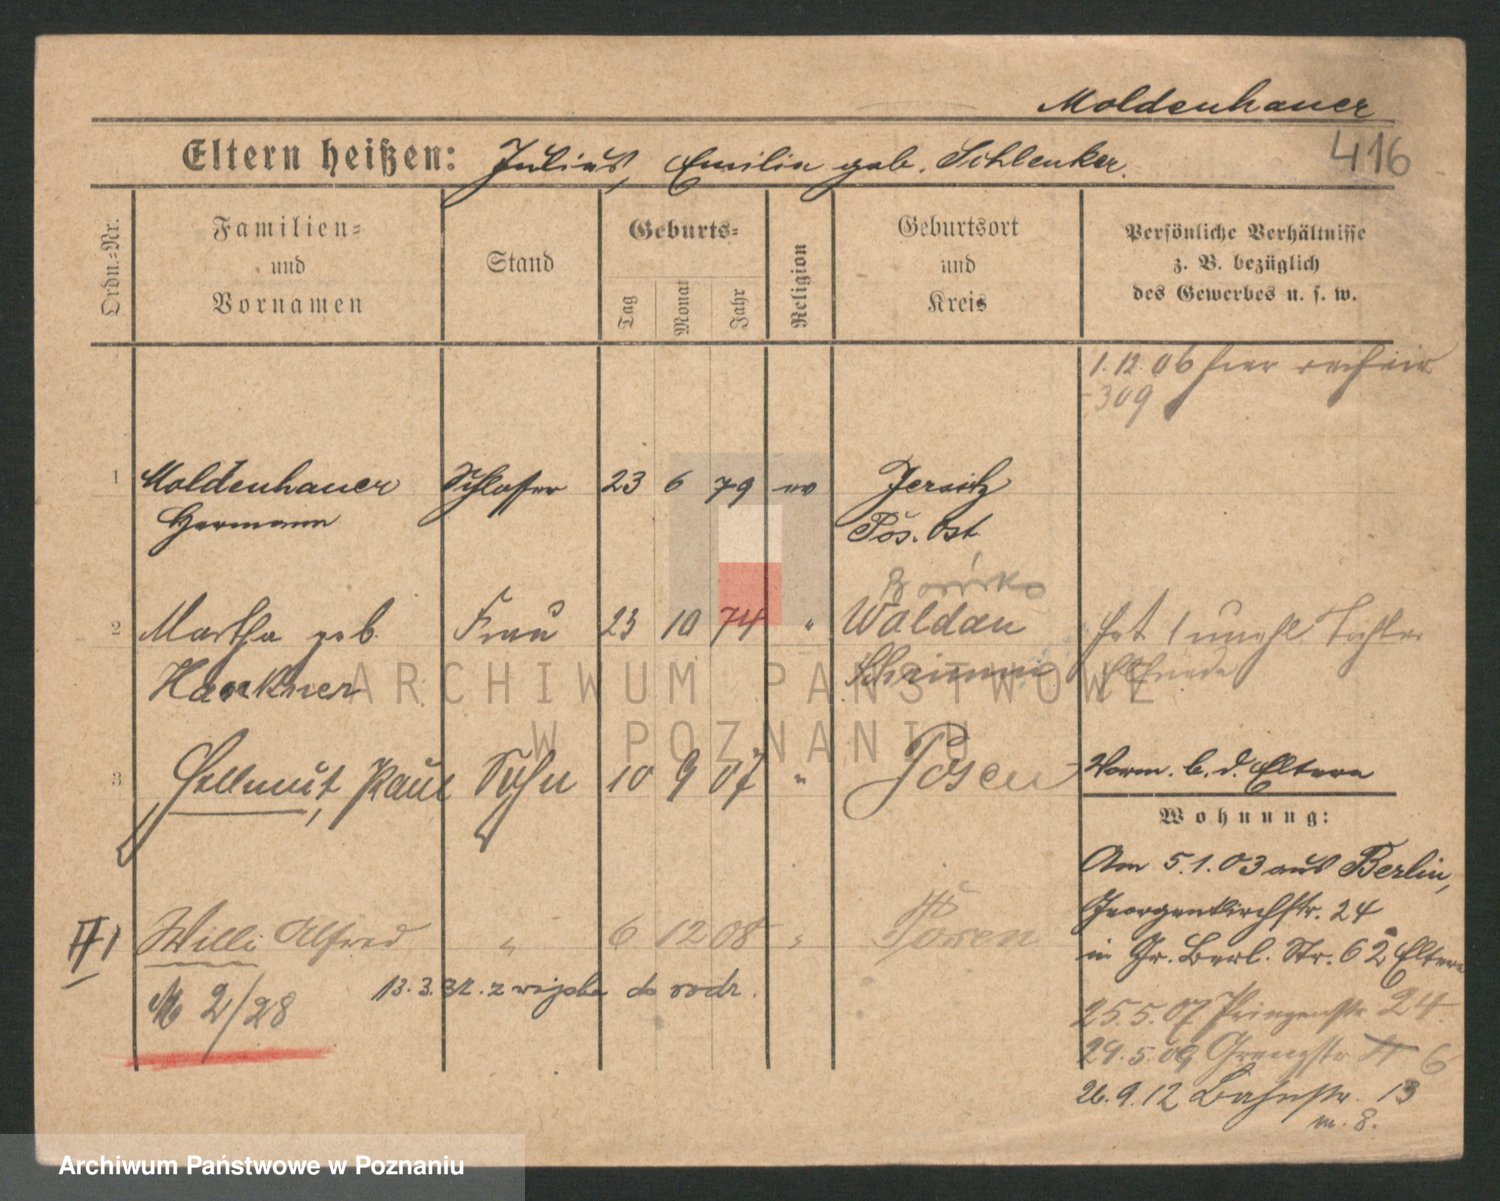 Moldenhauer
416
Eltern heißen: Julius, Emilie geb. Schlenker.
Ordn.-Nr.
Familien-
und
Vornamen
Stand
Geburts-
Tag
Monat
Jahr
Religion
Geburtsort
und
Kreis
Persönliche Verhältnisse
z. B. bezüglich
des Gewerbes u. s. w.
1.12.06 hier
309
1 Moldenhauer Schlosser 23 6 79 ev Jersitz
Hermann Pos. Ost
2 Martha geb. Frau 23 10 74 " Waldau hat 1 unehl. Tochter
Schrimm Elfriede
3 Hellmut, Paul Sohn 10 9 07 " Posen Vorm. b. d. Eltern
Wohnung:
Am 5.1.03 aus Berlin,
Georgenkirchstr. 24
in Gr. Berl. Str. 62 Eltern
Willi Alfred " 6 12 08 " Posen
M 2/28
13.3.32. z wojska do rodz.
25.5.07 Prinzenstr. 24.
29.5.09 Grenzstr. 6
26.9.12 Bahnstr. 13
m. 8.
ARCHIWUM PAŃSTWOWE
W POZNANIU
Archiwum Państwowe w Poznaniu